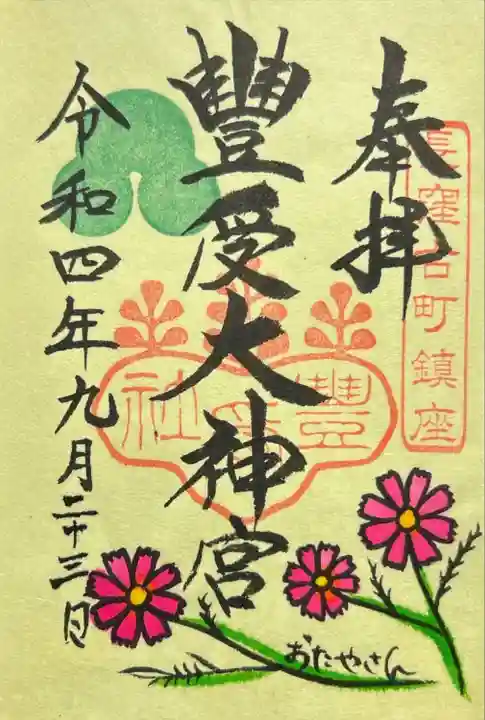 奉拝
長窪古町鎮座
豐受大神宮
豐受社
令和四年九月二十三日
おたやさん